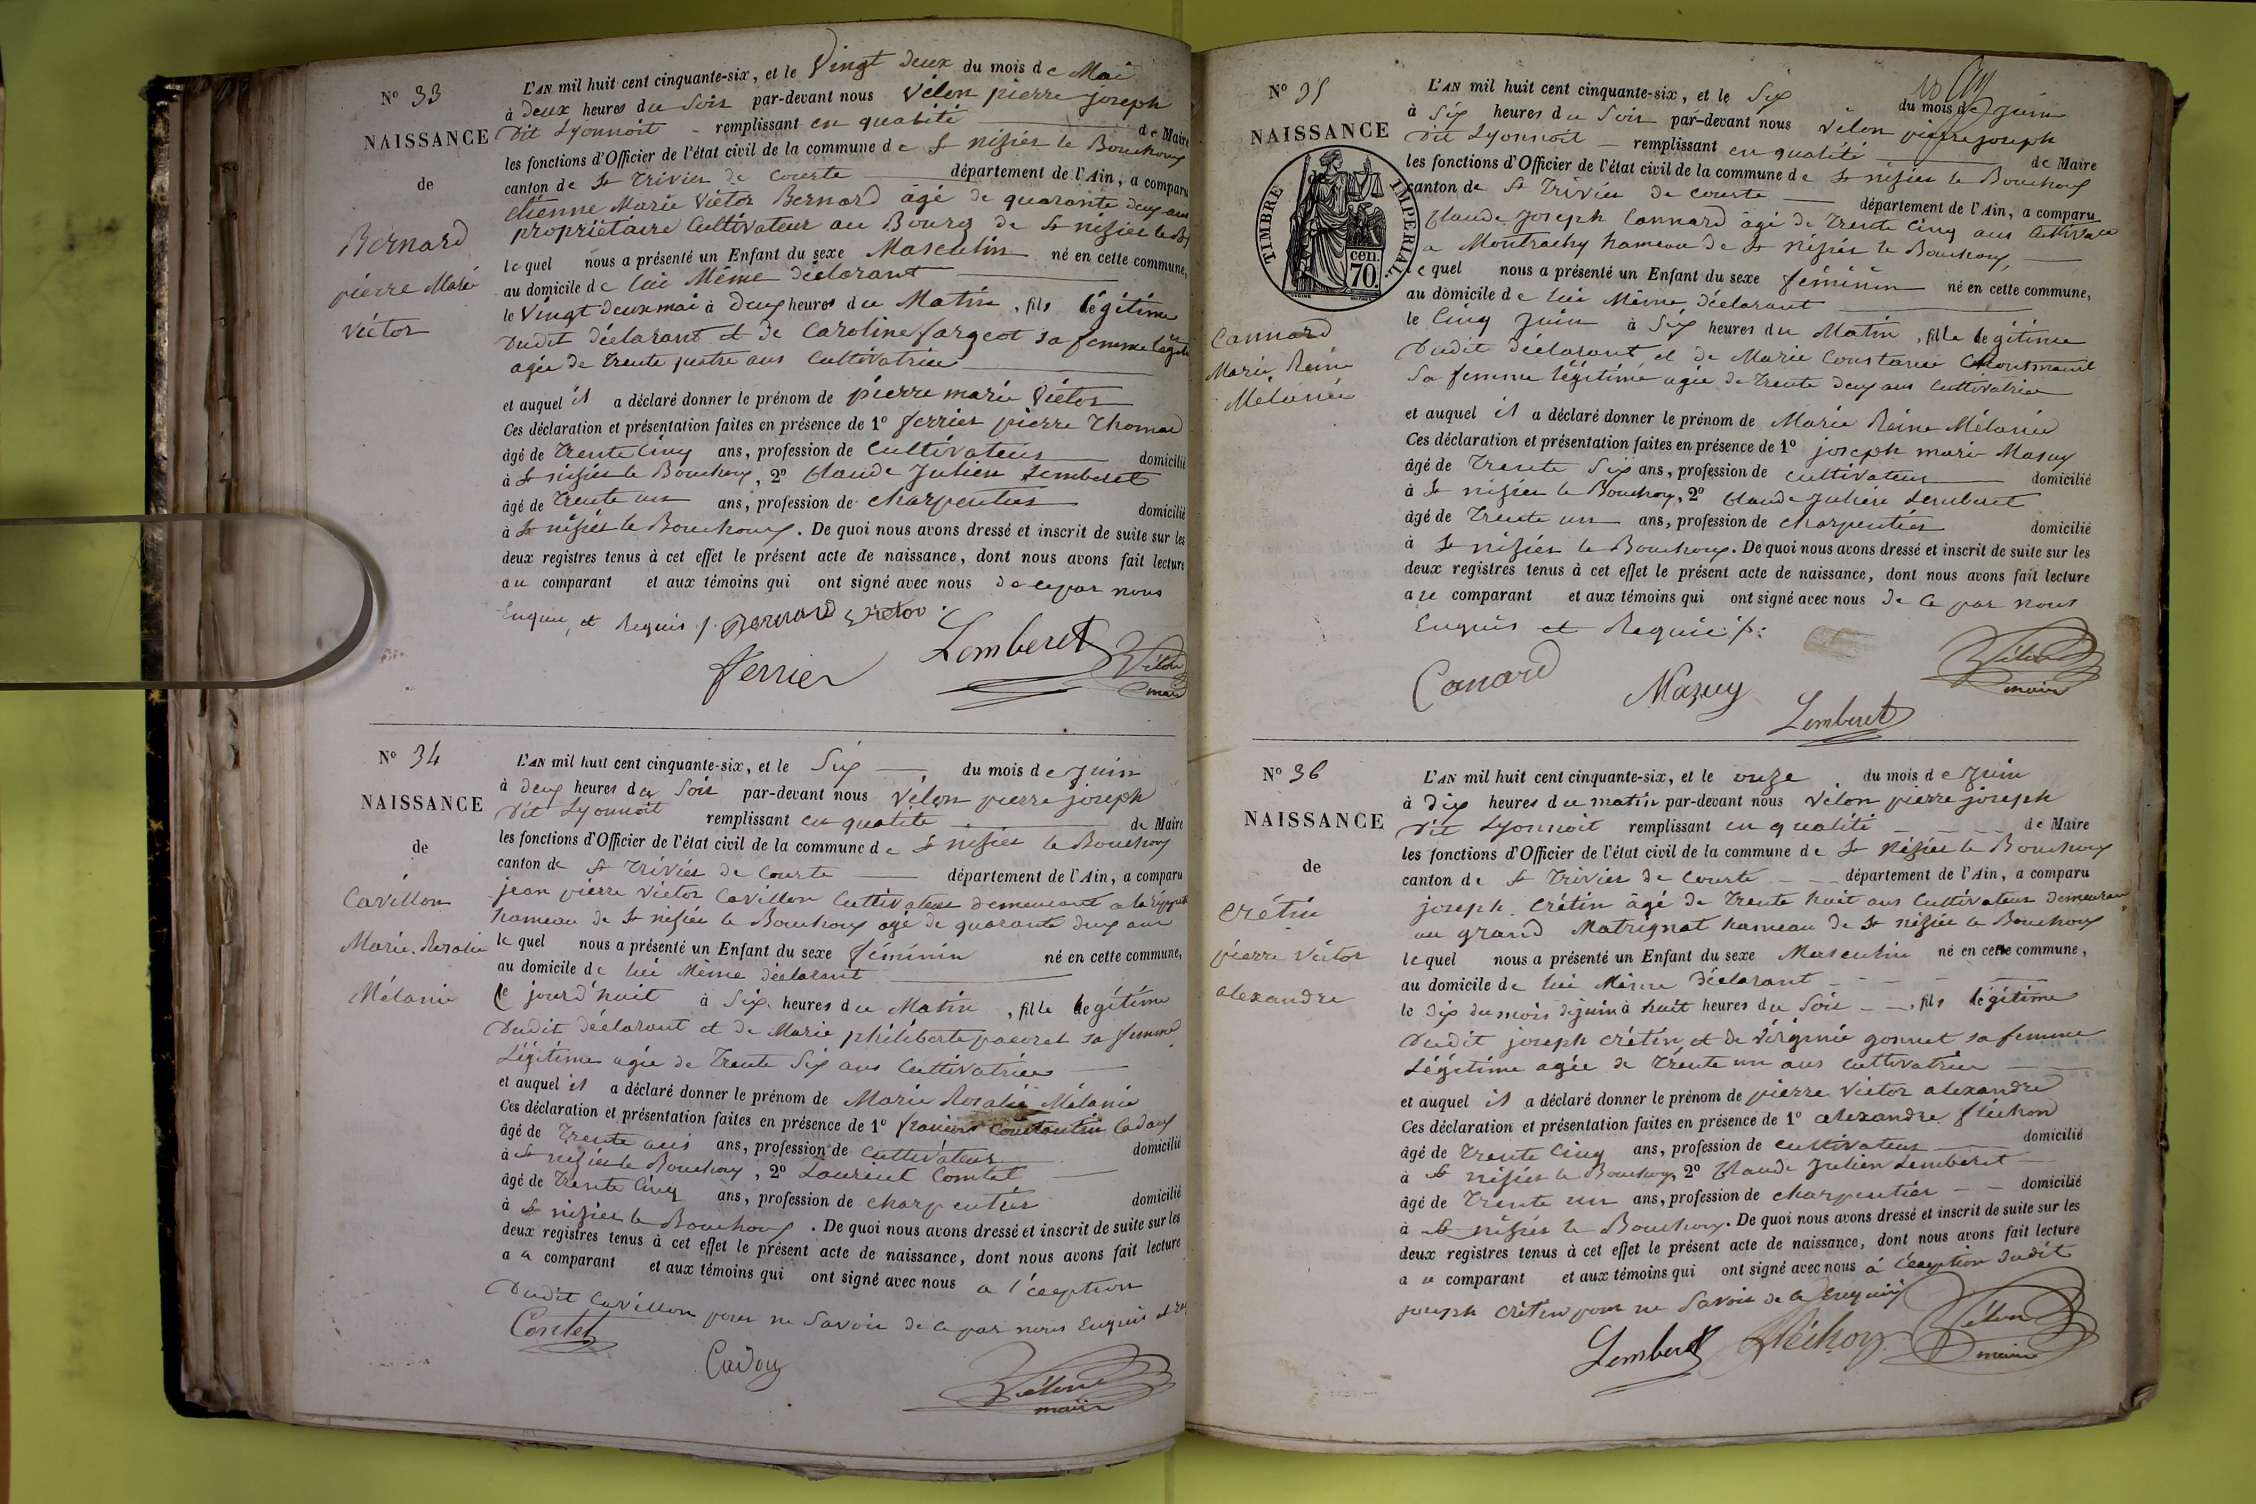 N° 33
NAISSANCE
de
Bernard
pierre Marie
Victor
L'AN mil huit cent cinquante-six, et le Vingt deux du mois de Mai
à deux heures du Soir par-devant nous Vélon pierre joseph
Dit Lyonnoit - remplissant en qualité de Maire
les fonctions d'Officier de l'état civil de la commune de St nisier le Bouchoux
canton de St Trivier de Courte département de l'Ain, a comparu
etienne Marie Victor Bernard âgé de quarante deux ans
propriétaire Cultivateur au Bourg de St nisier le
lequel nous a présenté un Enfant du sexe Masculin né en cette commune,
au domicile de lui Même déclarant
le Vingt deux mai à Deux heures du Matin, fils légitime
Dudit déclarant et de Caroline fargeot sa femme
agée de trente quatre ans Cultivatrice
et auquel il a déclaré donner le prénom de pierre marie Victor
Ces déclaration et présentation faites en présence de 1° ferrier pierre Thomas
âgé de Trente Cinq ans, profession de Cultivateur domicilié
à St nisier le Bouchoux, 2° Claude Julien Lemberet
âgé de Trente un ans, profession de charpentier domicilié
à St nisier le Bouchoux. De quoi nous avons dressé et inscrit de suite sur les
deux registres tenus à cet effet le présent acte de naissance, dont nous avons fait lecture
au comparant et aux témoins qui ont signé avec nous de ce par nous
Enquis et Requis ./. Bernard Victor.
ferrier Lemberet Vélon
maire
N° 34
NAISSANCE
de
Cavillon
Marie Rosalie
Mélanie
L'AN mil huit cent cinquante-six, et le Six du mois de Juin
à deux heures du Soir par-devant nous Vélon pierre joseph
Dit Lyonnoit remplissant en qualité de Maire
les fonctions d'Officier de l'état civil de la commune de St nisier le Bouchoux
canton de St Trivier de Courte département de l'Ain, a comparu
jean pierre Victor Cavillon Cultivateur demeurant a la
hameau de St nisier le Bouchoux agé de quarante deux ans
lequel nous a présenté un Enfant du sexe féminin né en cette commune,
au domicile de lui Même déclarant
Ce jourd'huit à Six heures du Matin, fille légitime
Dudit déclarant et de Marie philiberte pacoret sa femme
Légitime agée de Trente Six ans Cultivatrice
et auquel il a déclaré donner le prénom de Marie Rosalie Mélanie
Ces déclaration et présentation faites en présence de 1° francois Constantin Cadoux
âgé de Trente ans ans, profession de Cultivateur domicilié
à St nisier le Bouchoux, 2° Laurent Contet
âgé de Trente Cinq ans, profession de charpentier domicilié
à St nisier le Bouchoux. De quoi nous avons dressé et inscrit de suite sur les
deux registres tenus à cet effet le présent acte de naissance, dont nous avons fait lecture
au comparant et aux témoins qui ont signé avec nous a l'éception
Dudit Cavillon pour ne Savoir de ce par nous Enquis et
Contet
Cadoux
Vélon
maire
N° 35
NAISSANCE
TIMBRE IMPERIAL
cen. 70.
Cannard
Marie Reine
Mélanie
L'AN mil huit cent cinquante-six, et le Six du mois de Juin
à Six heures du Soir par-devant nous Vélon pierre joseph
Dit Lyonnoit - remplissant en qualité de Maire
les fonctions d'Officier de l'état civil de la commune de St nisier le Bouchoux
canton de St Trivier de Courte département de l'Ain, a comparu
Claude Joseph Cannard âgé de Trente Cinq ans Cultivateur
a Montrachy hameau de St nisier le Bouchoux,
lequel nous a présenté un Enfant du sexe féminin né en cette commune,
au domicile de lui Même déclarant
le Cinq Juin à Six heures du Matin, fille légitime
Dudit déclarant et de Marie Constance
Sa femme légitime agée de Trente deux ans Cultivatrice
et auquel il a déclaré donner le prénom de Marie Reine Mélanie
Ces déclaration et présentation faites en présence de 1° joseph marie Mazuy
âgé de Trente Six ans, profession de Cultivateur domicilié
à St nisier le Bouchoux, 2° Claude Julien Lemberet
âgé de Trente un ans, profession de charpentier domicilié
à St nisier le Bouchoux. De quoi nous avons dressé et inscrit de suite sur les
deux registres tenus à cet effet le présent acte de naissance, dont nous avons fait lecture
au comparant et aux témoins qui ont signé avec nous de ce par nous
Enquis et Requis ./.
Canard Mazuy Lemberet Vélon
maire
N° 36
NAISSANCE
de
Crétin
pierre Victor
alexandre
L'AN mil huit cent cinquante-six, et le onze du mois de Juin
à Dix heures du matin par-devant nous Vélon pierre joseph
Dit Lyonnoit remplissant en qualité de Maire
les fonctions d'Officier de l'état civil de la commune de St Nisier le Bouchoux
canton de St Trivier de Courte département de l'Ain, a comparu
joseph Crétin âgé de Trente huit ans Cultivateur demeurant
au grand Matrignat hameau de St nisier le Bouchoux
lequel nous a présenté un Enfant du sexe Masculin né en cette commune,
au domicile de lui Même Déclarant
le Dix du mois de juin à huit heures du Soir, fils légitime
Dudit joseph Crétin et de Virginie gonnet sa femme
Légitime agée de Trente un ans Cultivatrice
et auquel il a déclaré donner le prénom de pierre Victor alexandre
Ces déclaration et présentation faites en présence de 1° alexandre fléchon
âgé de Trente Cinq ans, profession de Cultivateur domicilié
à St nisier le Bouchoux, 2° Claude Julien Lemberet
âgé de Trente un ans, profession de charpentier domicilié
à St nisier le Bouchoux. De quoi nous avons dressé et inscrit de suite sur les
deux registres tenus à cet effet le présent acte de naissance, dont nous avons fait lecture
au comparant et aux témoins qui ont signé avec nous à l'éception dudit
joseph Crétin pour ne Savoir de ce Enquis
Lemberet fléchon Vélon
maire